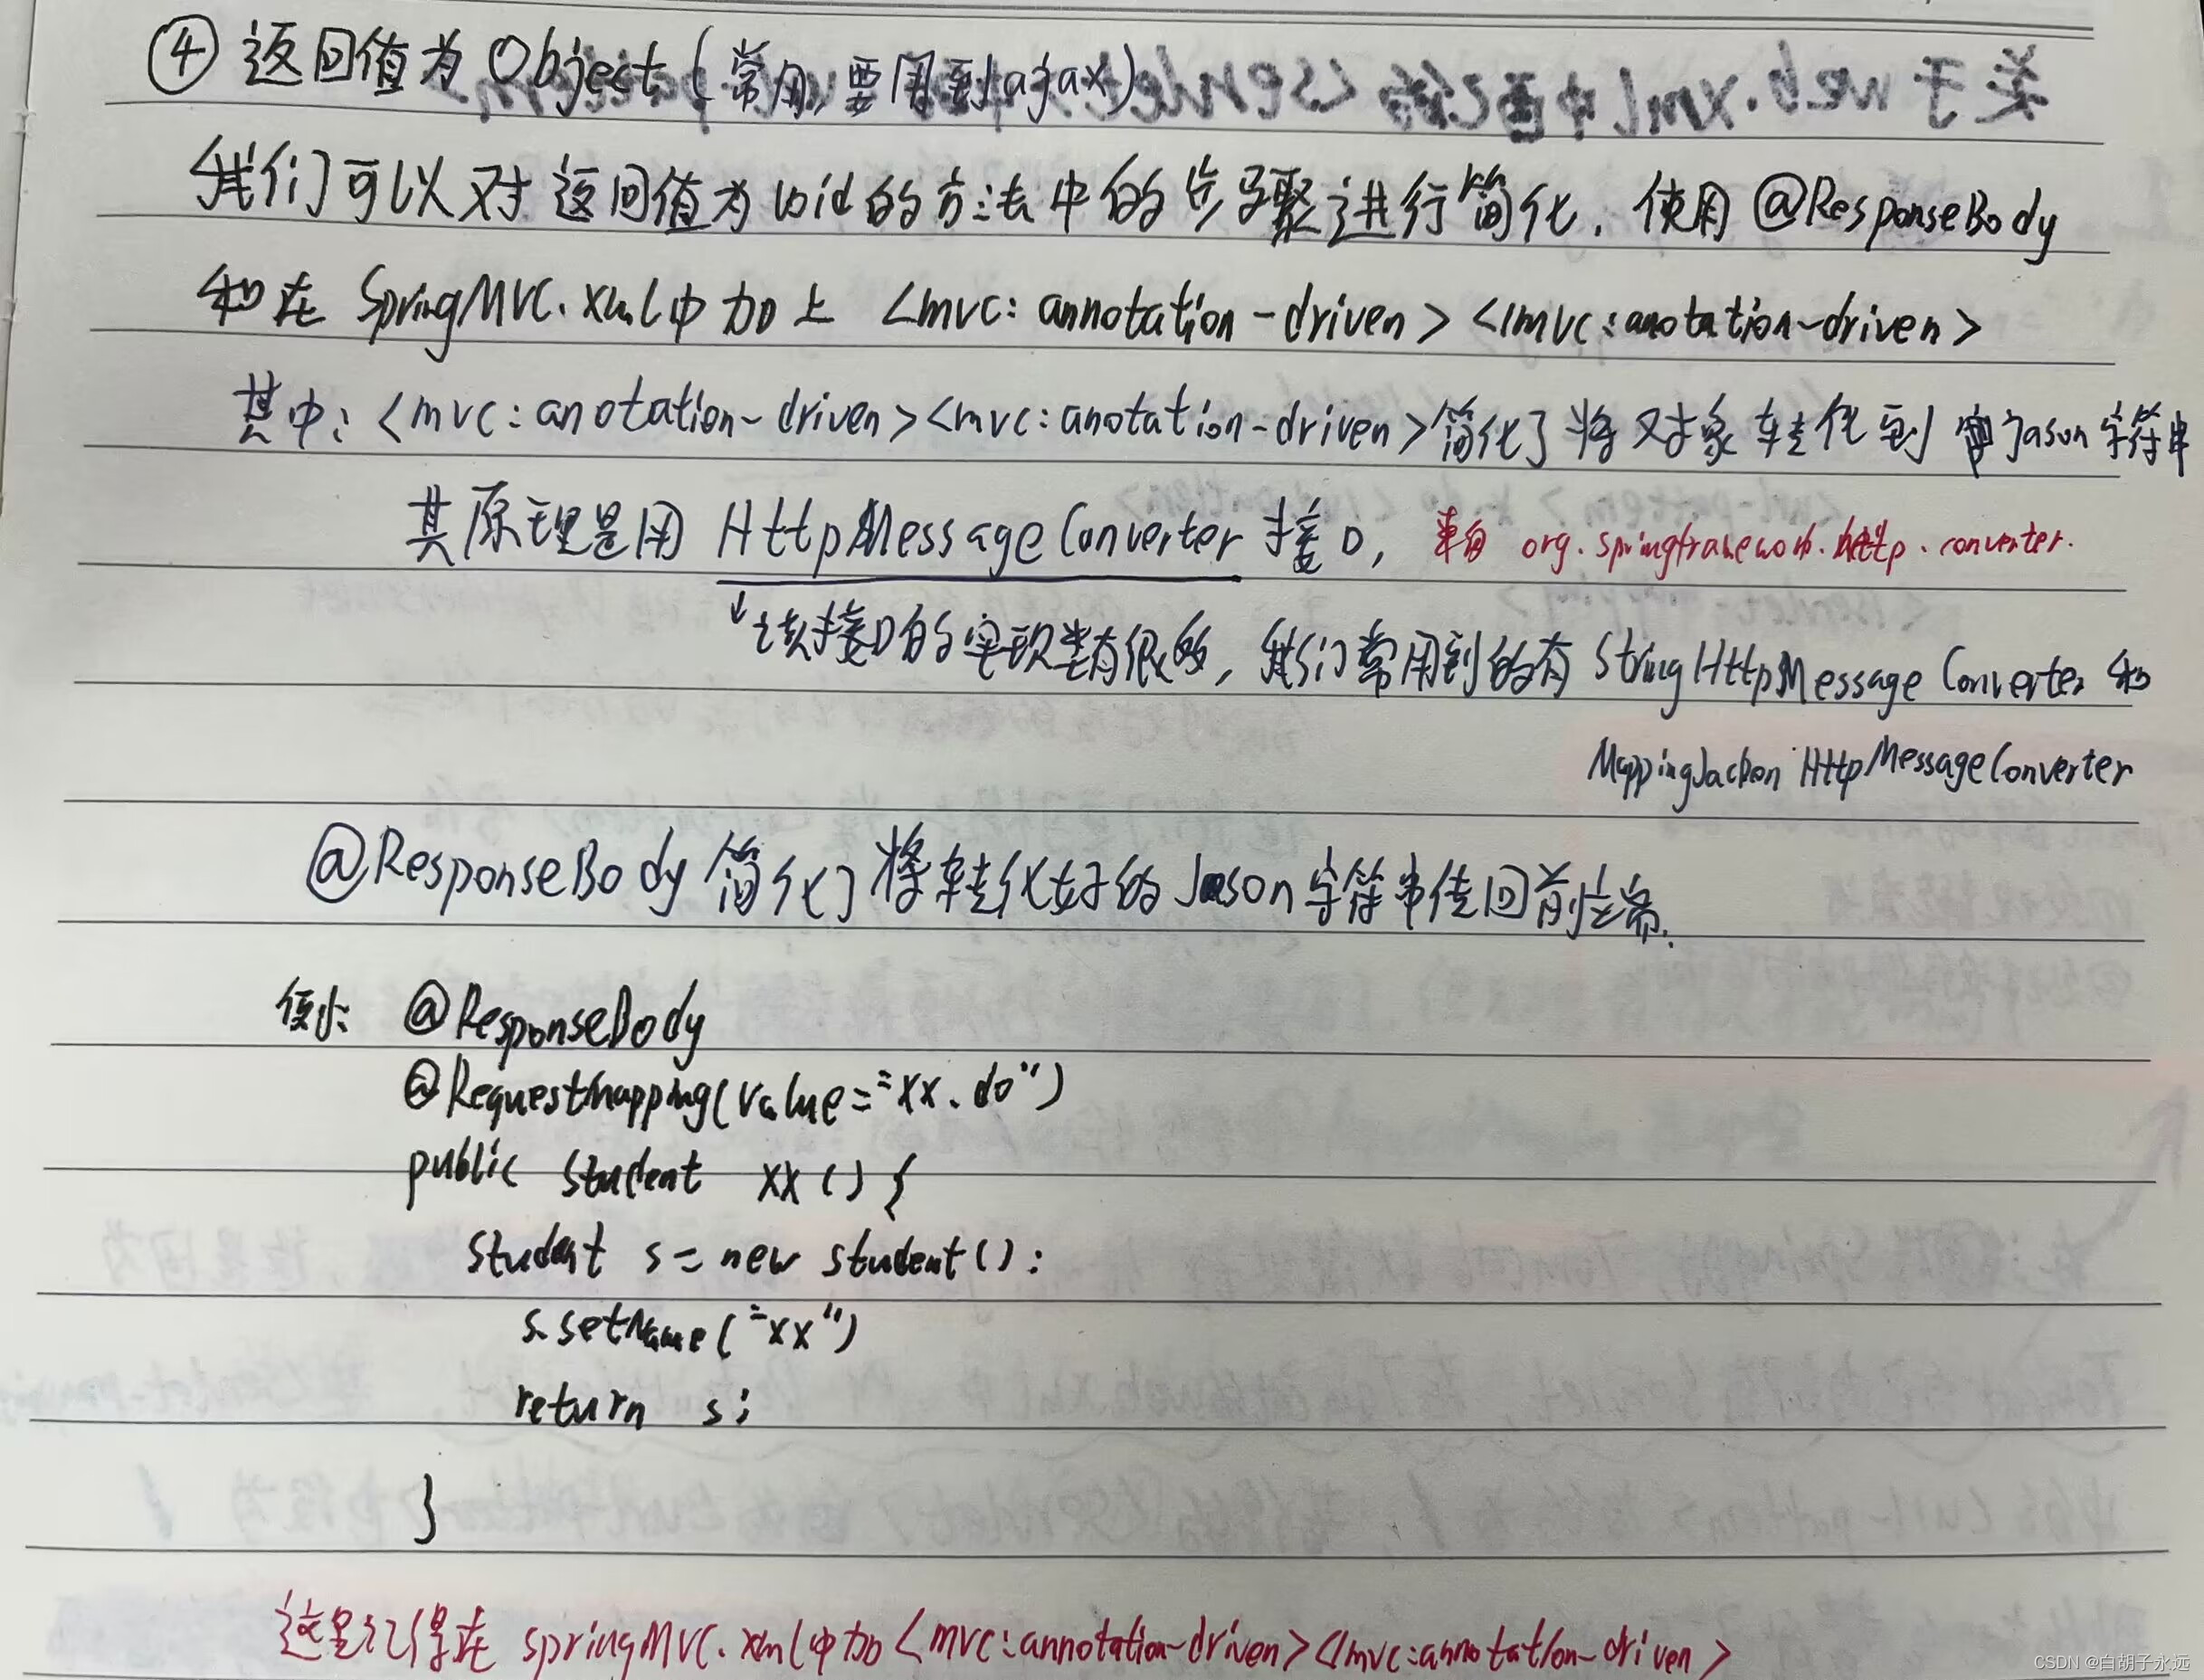 ④ 返回值为Object(常用,要用到ajax)
我们可以对返回值为void的方法中的步骤进行简化,使用@ResponseBody
和在SpringMVC.xml中加上 <mvc:annotation-driven></mvc:anotation-driven>
其中:<mvc:anotation-driven><mvc:anotation-driven>简化了将对象转化到Jason字符串
其原理是用 HttpMessageConverter 接口, 来自 org.springframework.http.converter.
↓该接口的实现类有很多,我们常用到的有 StringHttpMessageConverter 和
MappingJackson HttpMessageConverter
@ResponseBody 简化了将转化好的Jason字符串传回前端.
@ResponseBody
@RequestMapping(value="xx.do")
public Student xx(){
Student s=new student():
s.setName("xx")
return s;
}
这里记得在 springMVC.xml中加<mvc:annotation-driven></mvc:annotation-driven>
CSDN @白胡子永远